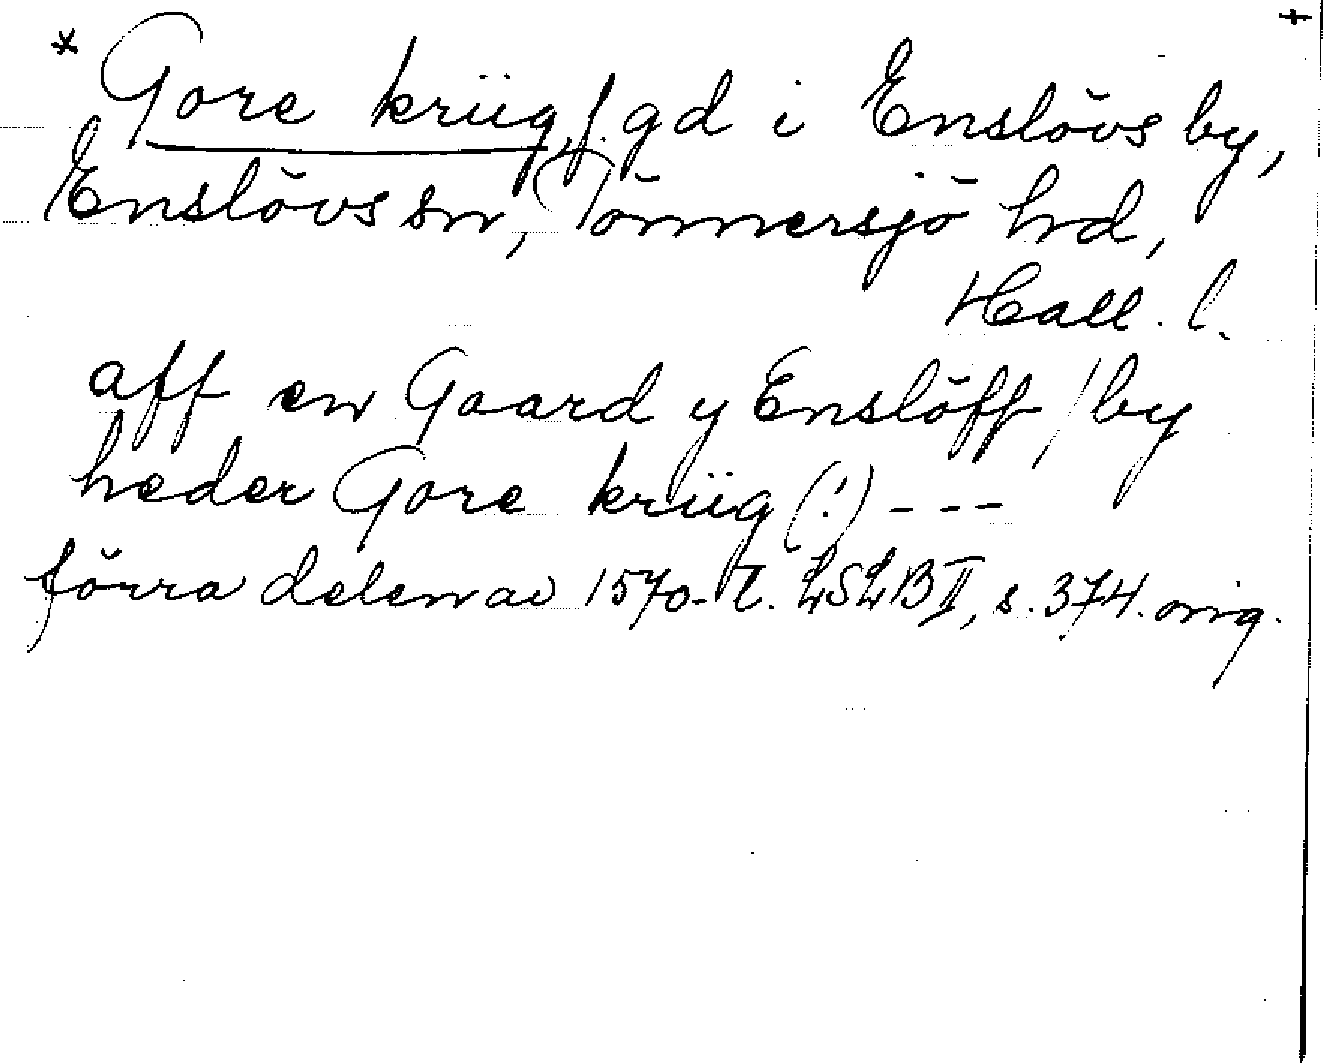 * Gore kriig, f. gd i Enslövs by, †
Enslövs sn, Tönnersjö hd,
Hall. l.
aff en Gaard y Enslöff / by
heder Gore kriig (!) - - -
förra delen av 1570-t. LSLB II, s. 374. orig.